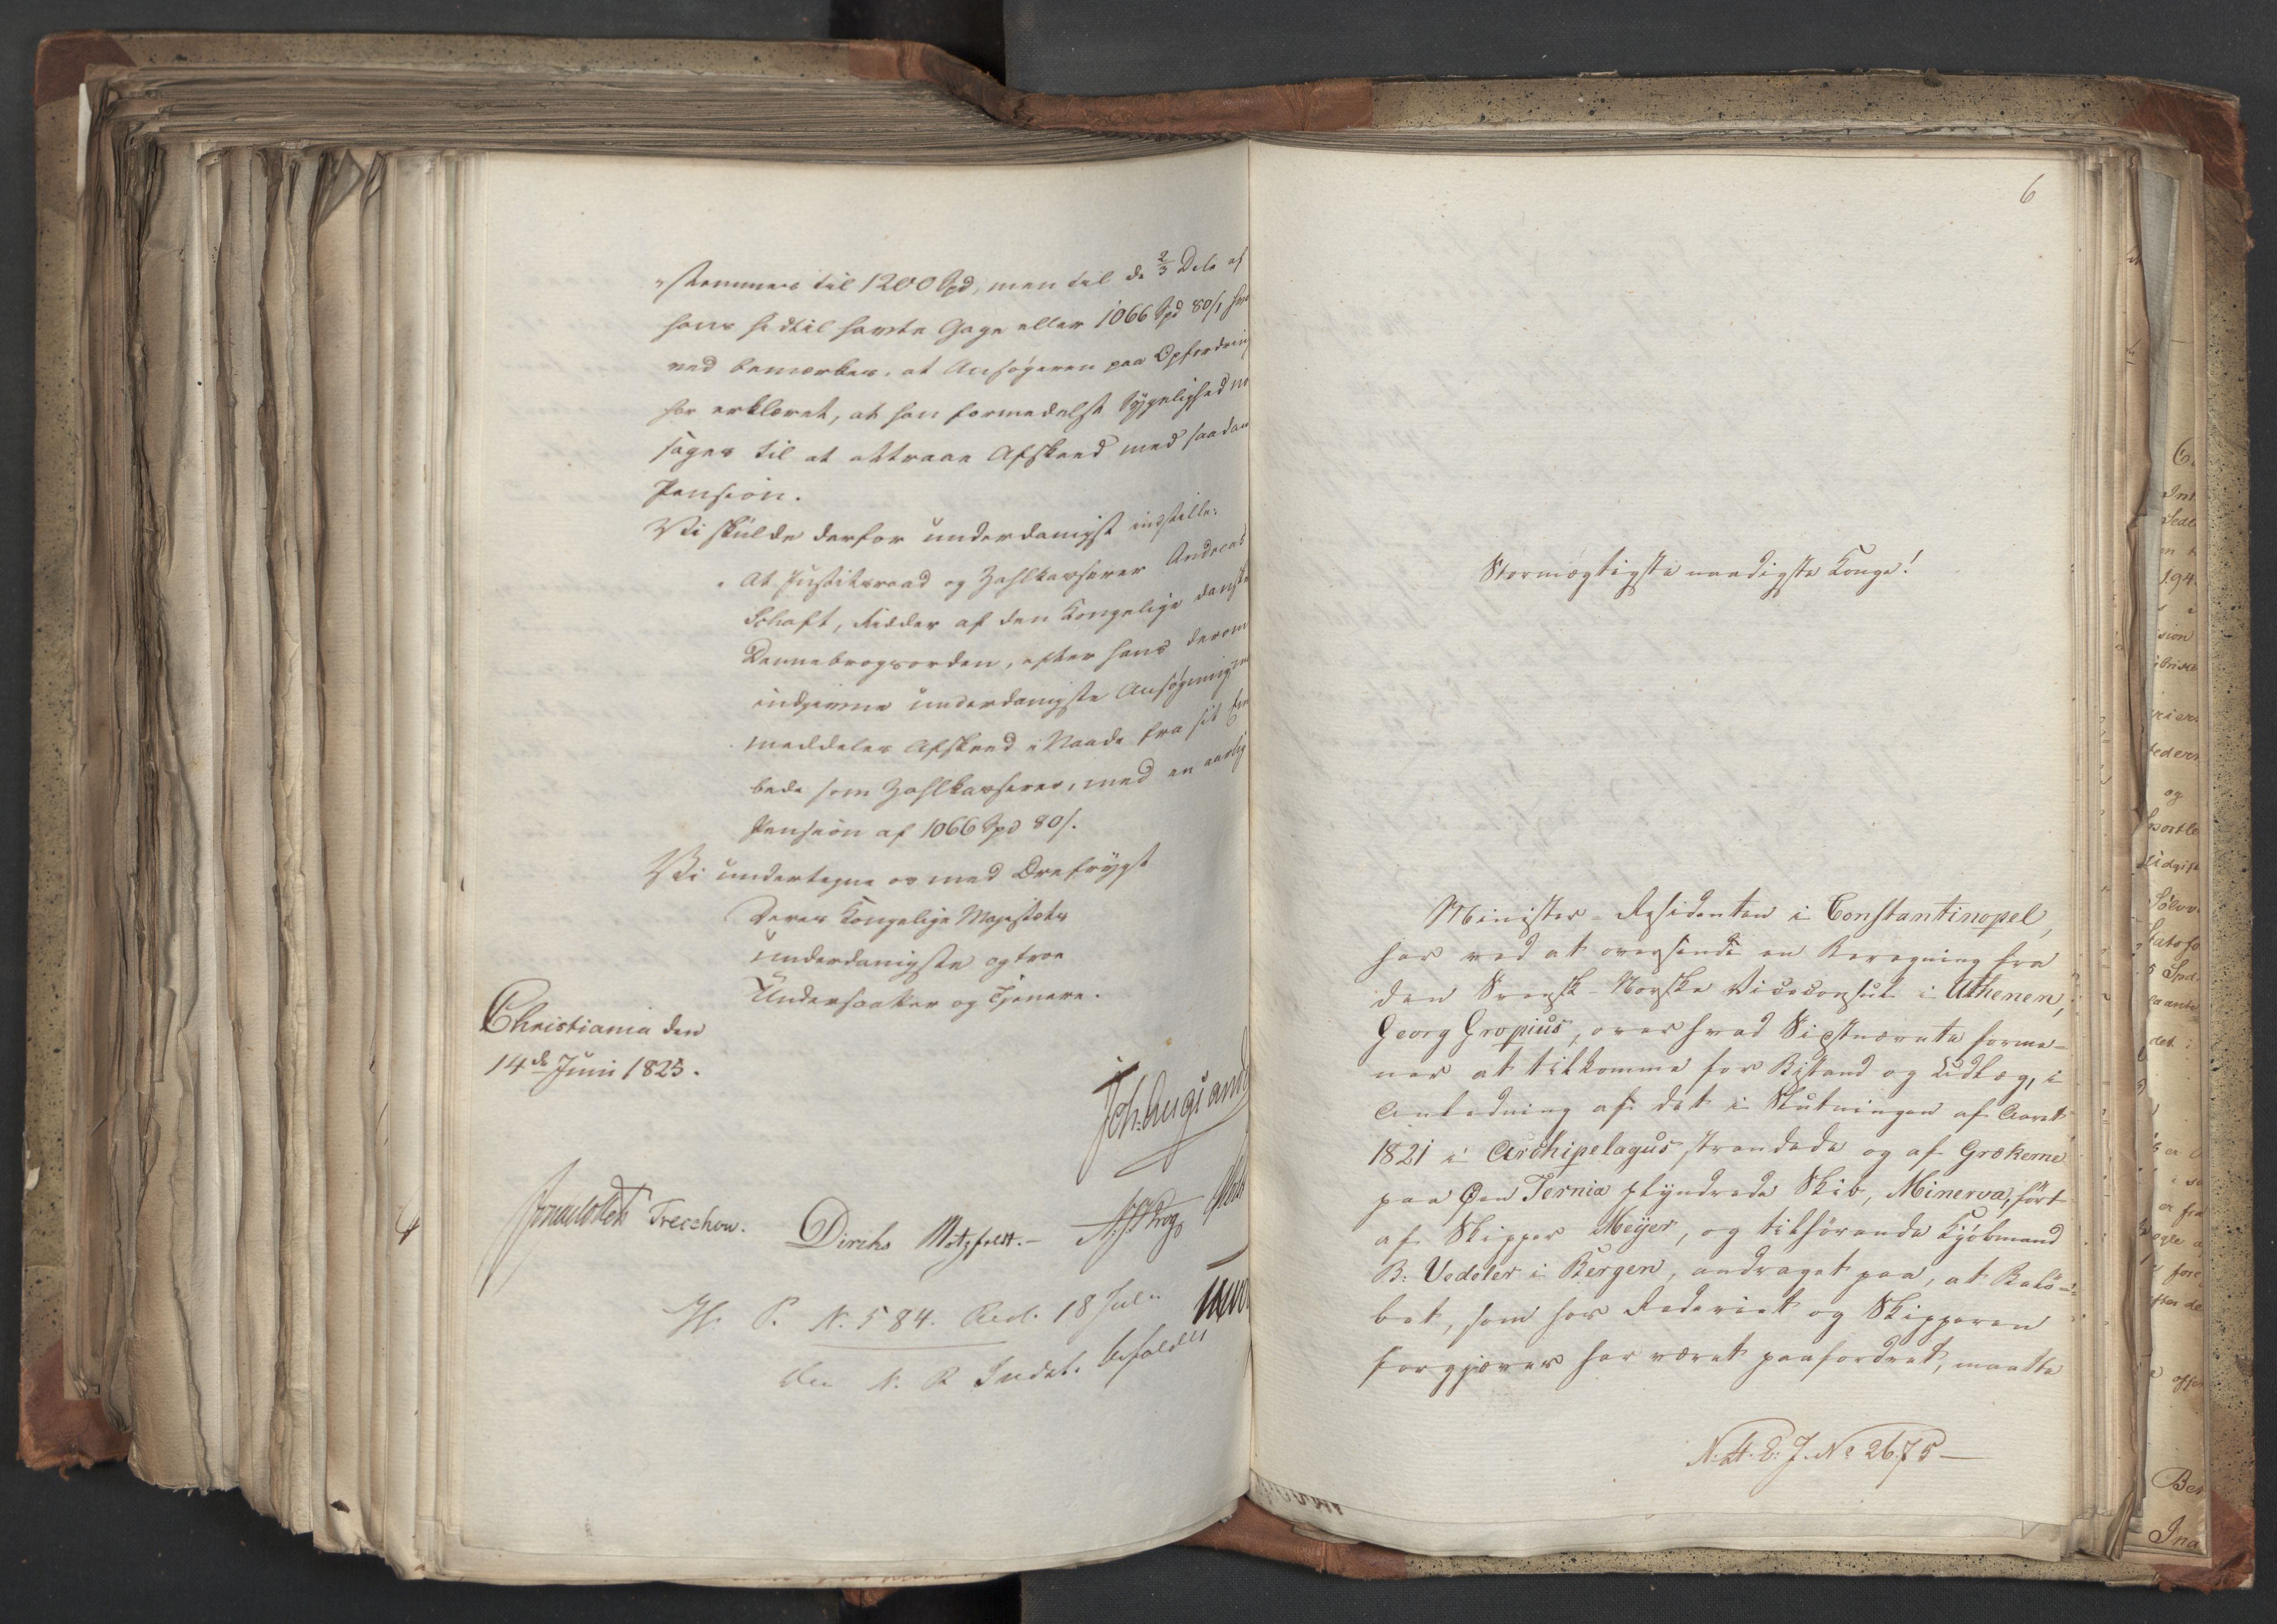 stemmes til 1200 Spd, men til de 2/3 Dele af
hans hidtil havte Gage eller 1066 Spd 80 s, hvor
ved bemærkes, at Ansøgeren paa Opfordring
har erklæret, at han formedelst Sygelighed
søges til at attraae Afskeed med saadan
Pension.
Vi skulde derfor underdanigst indstille:
At Justitsraad og Zahlkasserer Andreas
Schaft, Ridder af den Kongelige danske
Dannebrogsorden, efter hans derom
indgivne underdanigste Ansøgning
meddeles Afskeed i Naade fra sit Em
bede som Zahlkasserer, med en aarlig
Pension af 1066 Spd 80 s.
Vi undertegne os med Ærefrygt
Deres Kongelige Majestæts
underdanigste og troe
Undersaatter og Tjenere.
Christiania den
14de Juni 1825.
Joh. Aug. Sand
Treschow. Diriks Motzfeldt.
P. N. 584. 18 Juli
6
Stormægtigste naadigste Konge!
Minister-Residenten i Constantinopel,
har ved at oversende en Beregning fra
den Svensk-Norske Viceconsul i Athenen,
Georg Gropius, over hvad Sidstnævnte forme-
ner at tilkomme for Bistand og Udlæg, i
Anledning af det i Slutningen af Aaret
1821 i Archipelagus strandede og af Grækerne
paa Øen Ternia plyndrede Skib, Minerva, ført
af Skipper Meÿer, og tilhørende Kjøbmand
B: Vedeler i Bergen, andraget paa, at Belø-
bet, som hos Rederiet og Skipperen
forgjæves har været paafordret, maatte
N. H. D. J. No 2675 —